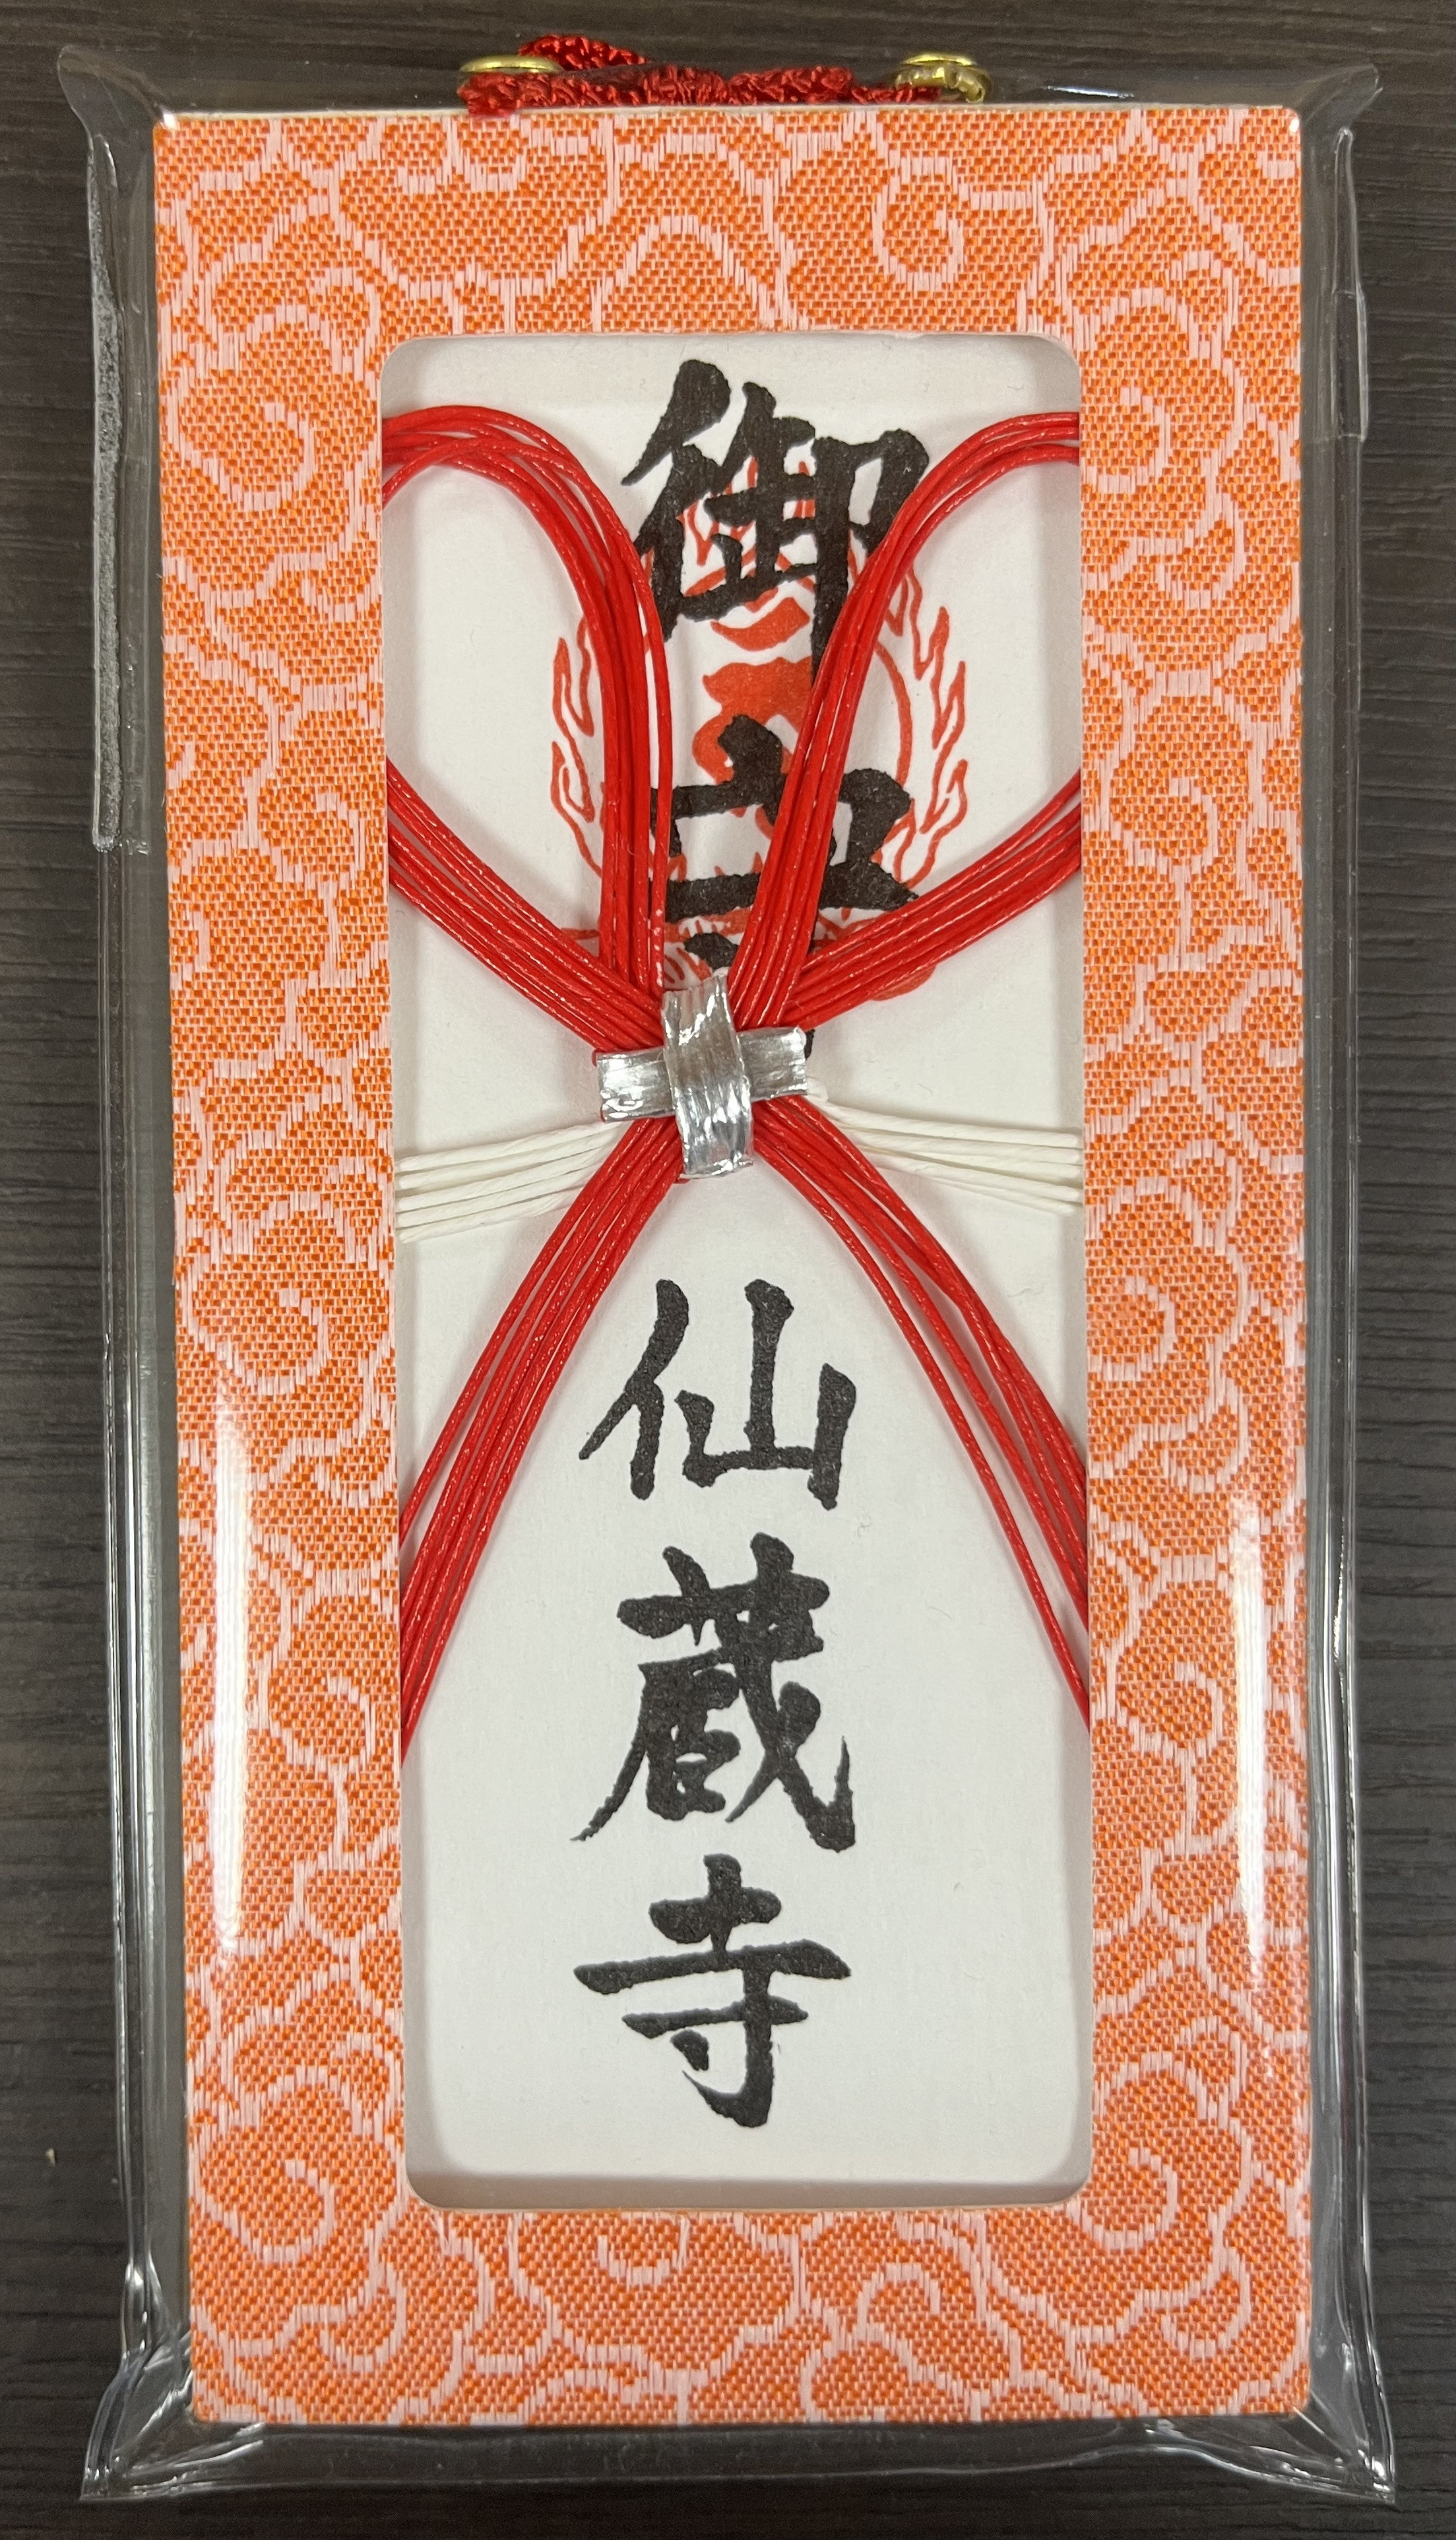 御守
仙蔵寺